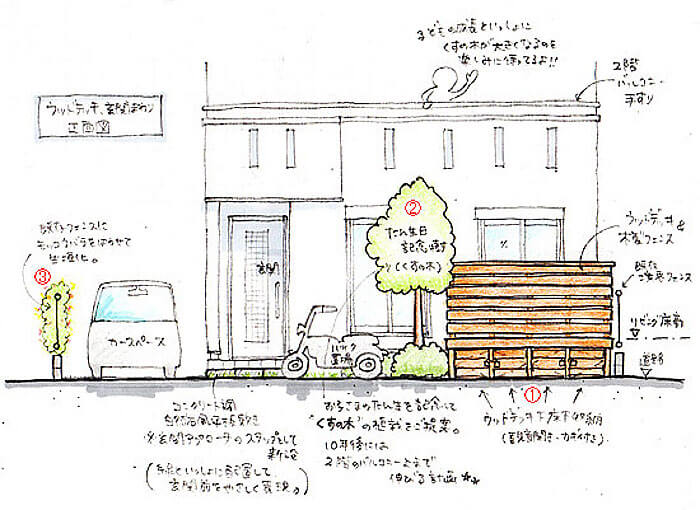 子どもの成長といっしょに
くすの木が大きくなるのを
楽しみに待ってるよ!!
2階
バルコニー
手すり
ウッドデッキ、玄関まわり
正面図
既存フェンスに
モッコウバラをはわせて
生垣化。
③
カースペース
玄関
②
たん生日
記念樹
(くすの木)
バイク
置場
ウッドデッキ&
木製フェンス
既存
フェンス
リビング床高
道路
①
ウッドデッキ下床下収納
コンクリート調
自然石風平板敷き
※玄関アプローチのステップとして
新設
玄関前をやさしく表現。)
お子さまのたん生を記念して
"くすの木"の植樹をご提案。
10年後には
2階のバルコニーまで
伸びる計画